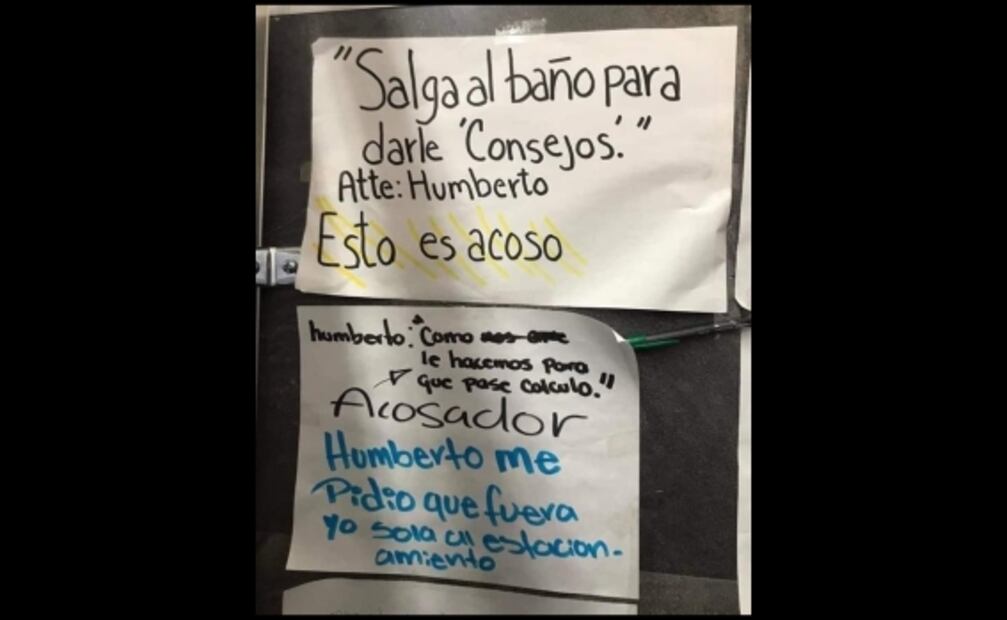 "Salga al baño para
darle 'Consejos'."
Atte: Humberto
Esto es acoso
humberto: "Como
le hacemos para
que pase calculo."
Acosador
Humberto me
Pidio que fuera
yo sola al estacion-
amiento